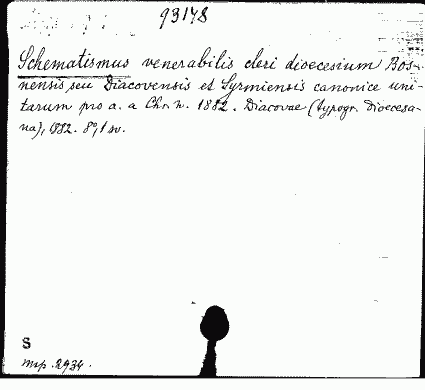 93178
Schematismus venerabilis cleri dioecesium Bos-
nensis seu Diacovensis et Syrmiensis canonice uni-
tarum pro a. a Chr. n. 1882. Diacovae (typogr. dioecesa-
na), 1882. 8°, 1 sv.
S
mp. 2934.